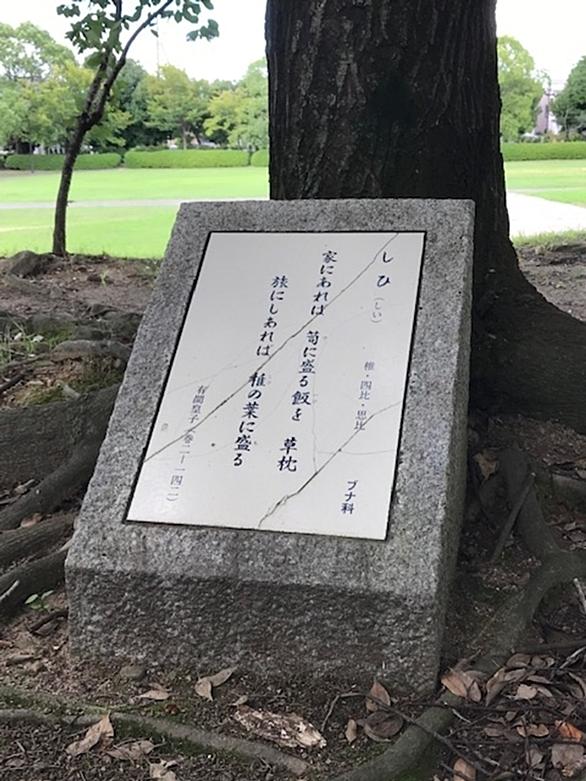 しひ（しい）
椎・四比・思比
ブナ科
家にあれば 笥に盛る飯を 草枕
旅にしあれば 椎の葉に盛る
有間皇子（巻二―一四二）